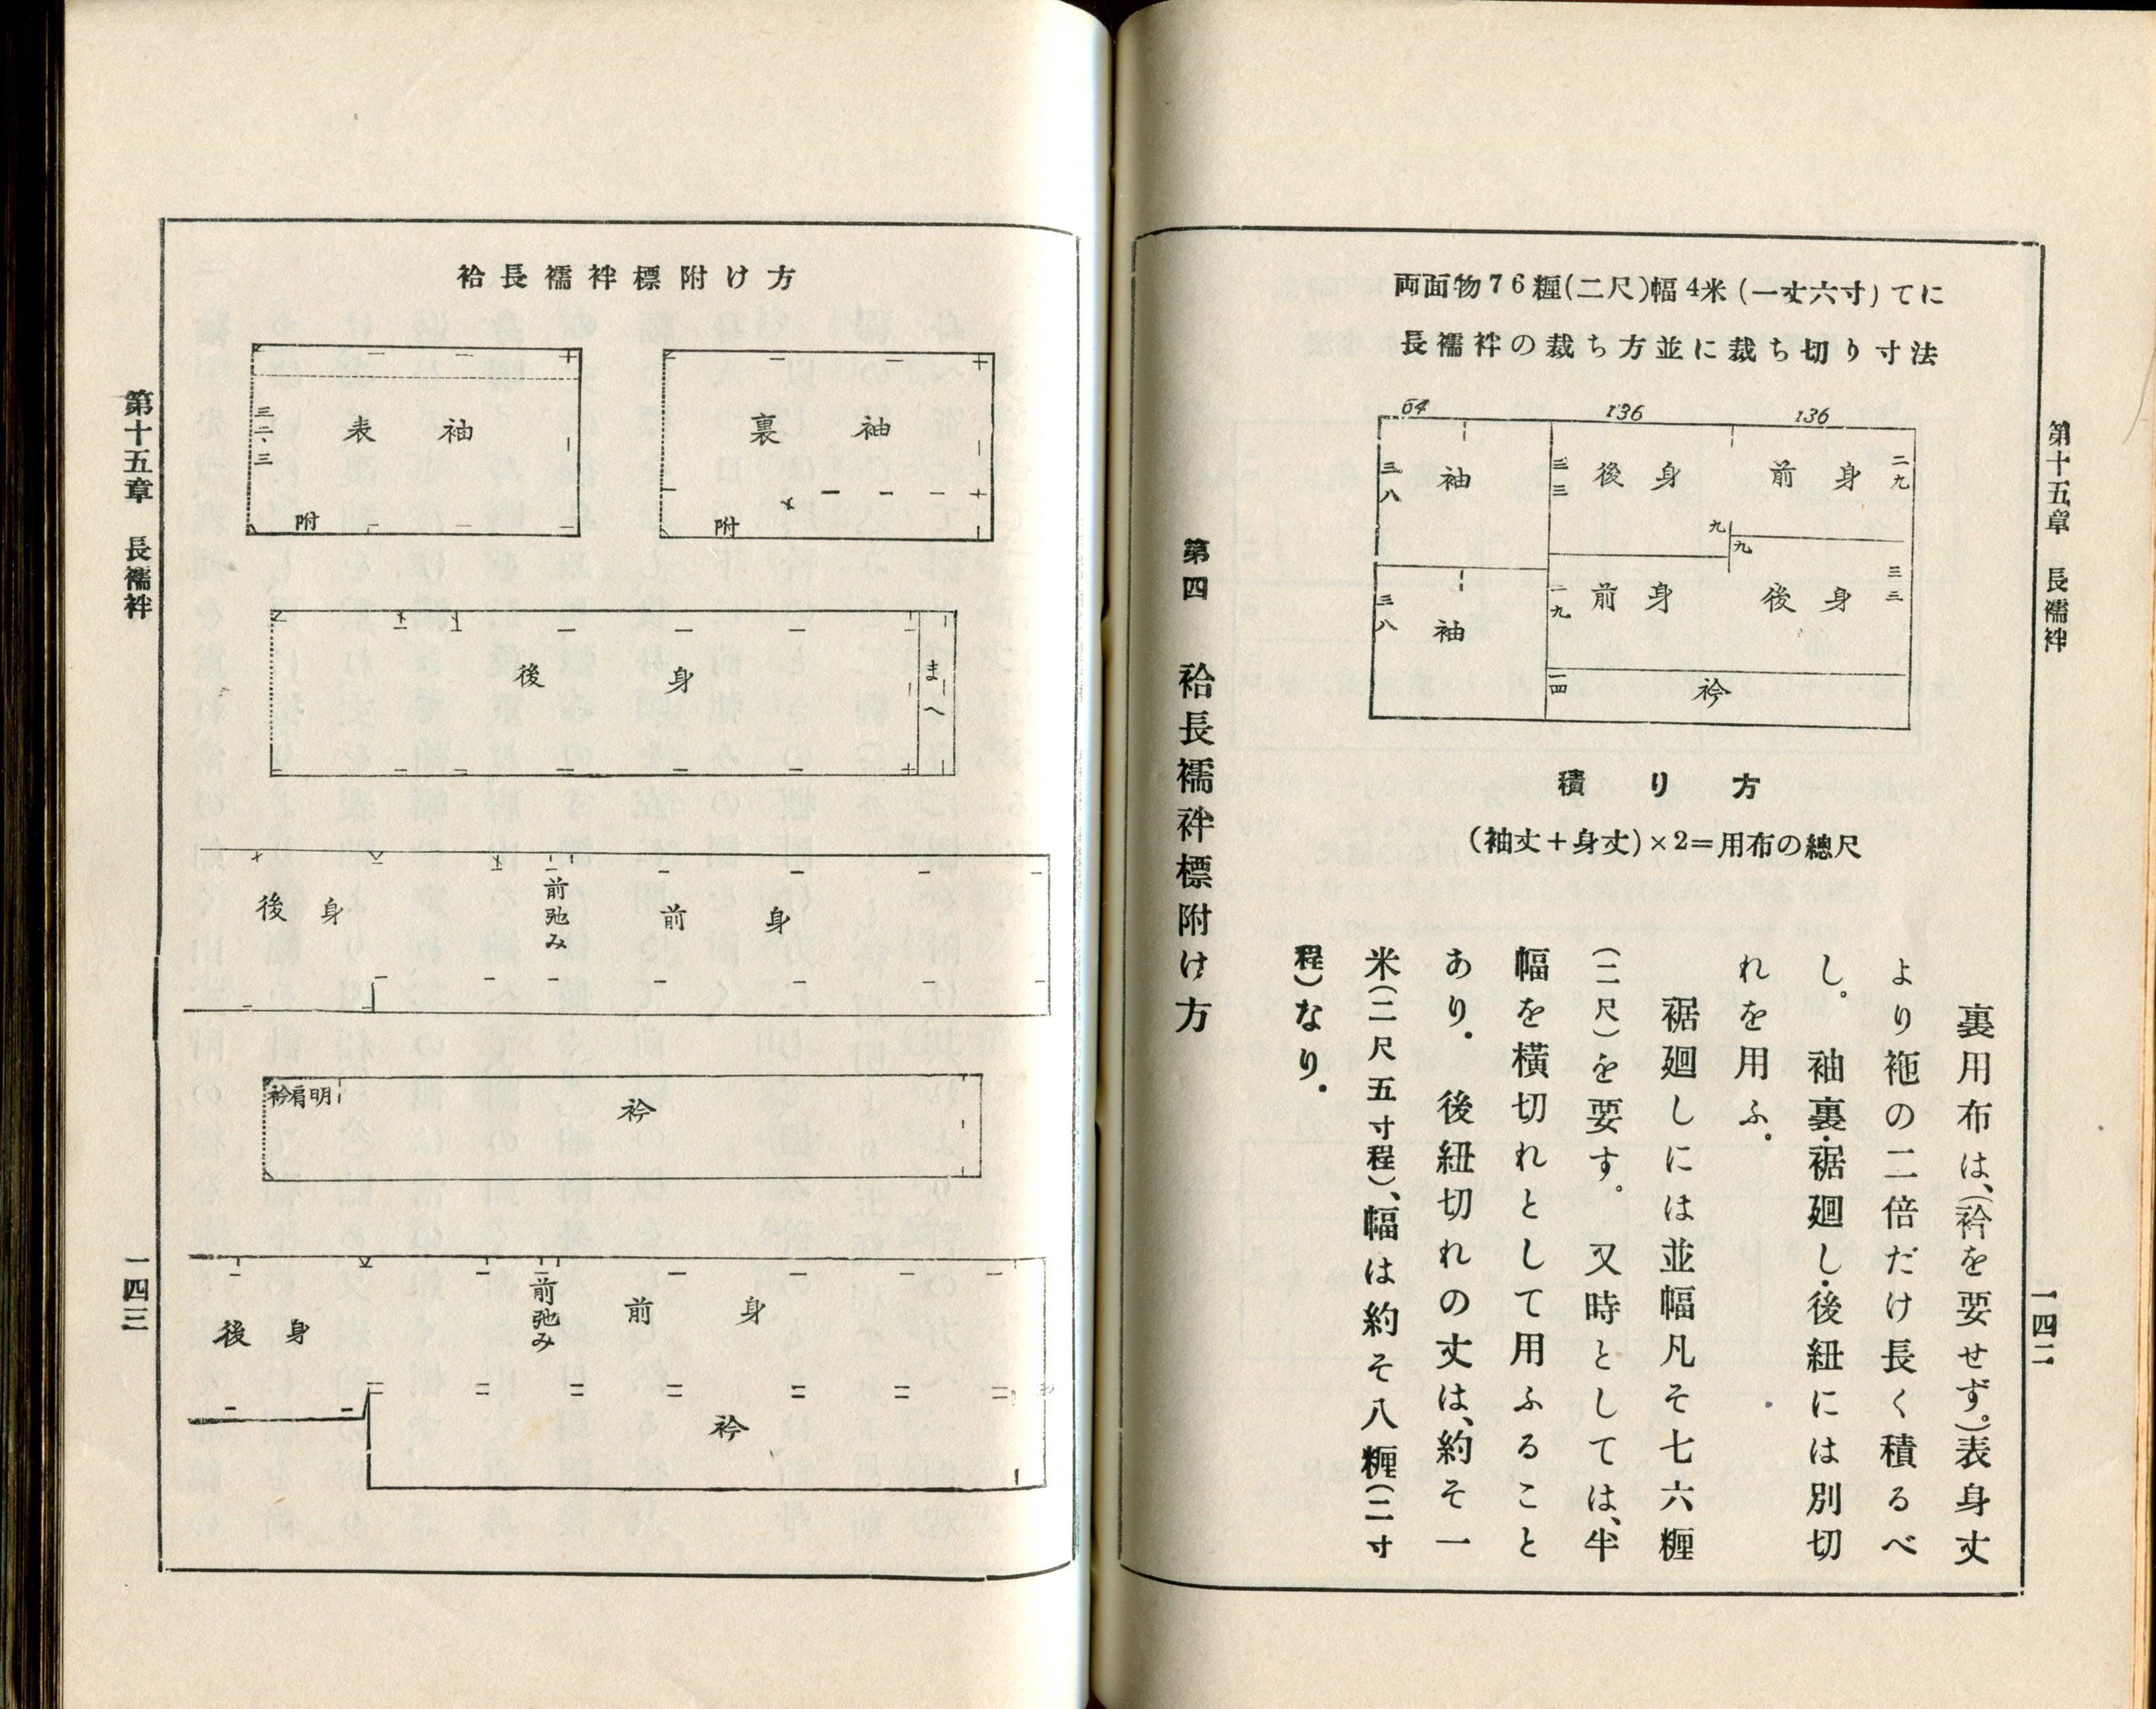 第十五章　長襦袢
一四二
両面物76糎(二尺)幅4米(一丈六寸)てに
長襦袢の裁ち方並に裁ち切り寸法
64
136
136
三八
袖
三三
後身
前身
二九
九
九
三八
袖
二九
前身
後身
三三
一四
衿
積り方
(袖丈＋身丈)×2＝用布の總尺
裏用布は、(衿を要せず。)表身丈
より𧘱の二倍だけ長く積るべ
し。袖裏・裾廻し・後紐には別切
れを用ふ。
裾廻しには並幅凡そ七六糎
(二尺)を要す。又時としては、半
幅を横切れとして用ふること
あり。後紐切れの丈は、約そ一
米(二尺五寸程)、幅は約そ八糎(二寸
程)なり。
第四　袷長襦袢標附け方
袷長襦袢標附け方
裏袖
附
表袖
三二、三
附
後身
まへ
後身
前弛み
前身
衿肩明
衿
後身
前弛み
前身
衿
第十五章　長襦袢
一四三